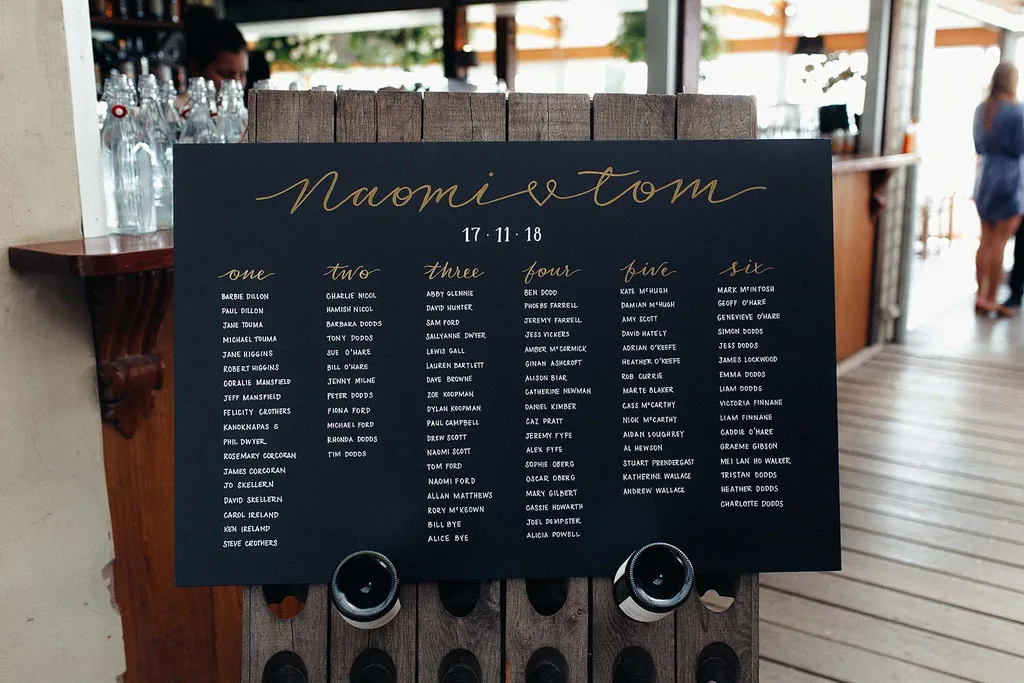 Naomi ♡ tom
17·11·18
one
BARBIE DILLON
PAUL DILLON
JANE TOUMA
MICHAEL TOUMA
JANE HIGGINS
ROBERT HIGGINS
CORALIE MANSFIELD
JEFF MANSFIELD
FELICITY CROTHERS
KANOKNAPAS &
PHIL DWYER
ROSEMARY CORCORAN
JAMES CORCORAN
JO SKELLERN
DAVID SKELLERN
CAROL IRELAND
KEN IRELAND
STEVE CROTHERS
two
CHARLIE NICOL
HAMISH NICOL
BARBARA DODDS
TONY DODDS
SUE O'HARE
BILL O'HARE
JENNY MILNE
PETER DODDS
FIONA FORD
MICHAEL FORD
RHONDA DODDS
TIM DODDS
three
ABBY GLENNIE
DAVID HUNTER
SAM FORD
SALLYANNE DWYER
LEWIS GALL
LAUREN BARTLETT
DAVE BROWNE
ZOE KOOPMAN
DYLAN KOOPMAN
PAUL CAMPBELL
DREW SCOTT
NAOMI SCOTT
TOM FORD
NAOMI FORD
ALLAN MATTHEWS
RORY McKEOWN
BILL BYE
ALICE BYE
four
BEN DODD
PHOEBE FARRELL
JEREMY FARRELL
JESS VICKERS
AMBER McCORMICK
GINAN ASHCROFT
ALISON BIAR
CATHERINE NEWMAN
DANIEL KIMBER
CAZ PRATT
JEREMY FYFE
ALEX FYFE
SOPHIE OBERG
OSCAR OBERG
MARY GILBERT
CASSIE HOWARTH
JOEL DEMPSTER
ALICIA POWELL
five
KATE McHUGH
DAMIAN McHUGH
AMY SCOTT
DAVID HATELY
ADRIAN O'KEEFE
HEATHER O'KEEFE
ROB CURRIE
MARTE BLAKER
CASS McCARTHY
NICK McCARTHY
AIDAN LOUGHREY
AL HEWSON
STUART PRENDERGAST
KATHERINE WALLACE
ANDREW WALLACE
six
MARK McINTOSH
GEOFF O'HARE
GENEVIEVE O'HARE
SIMON DODDS
JESS DODDS
JAMES LOCKWOOD
EMMA DODDS
LIAM DODDS
VICTORIA FINNANE
LIAM FINNANE
CADDIE O'HARE
GRAEME GIBSON
MEI LAN HO WALKER
TRISTAN DODDS
HEATHER DODDS
CHARLOTTE DODDS